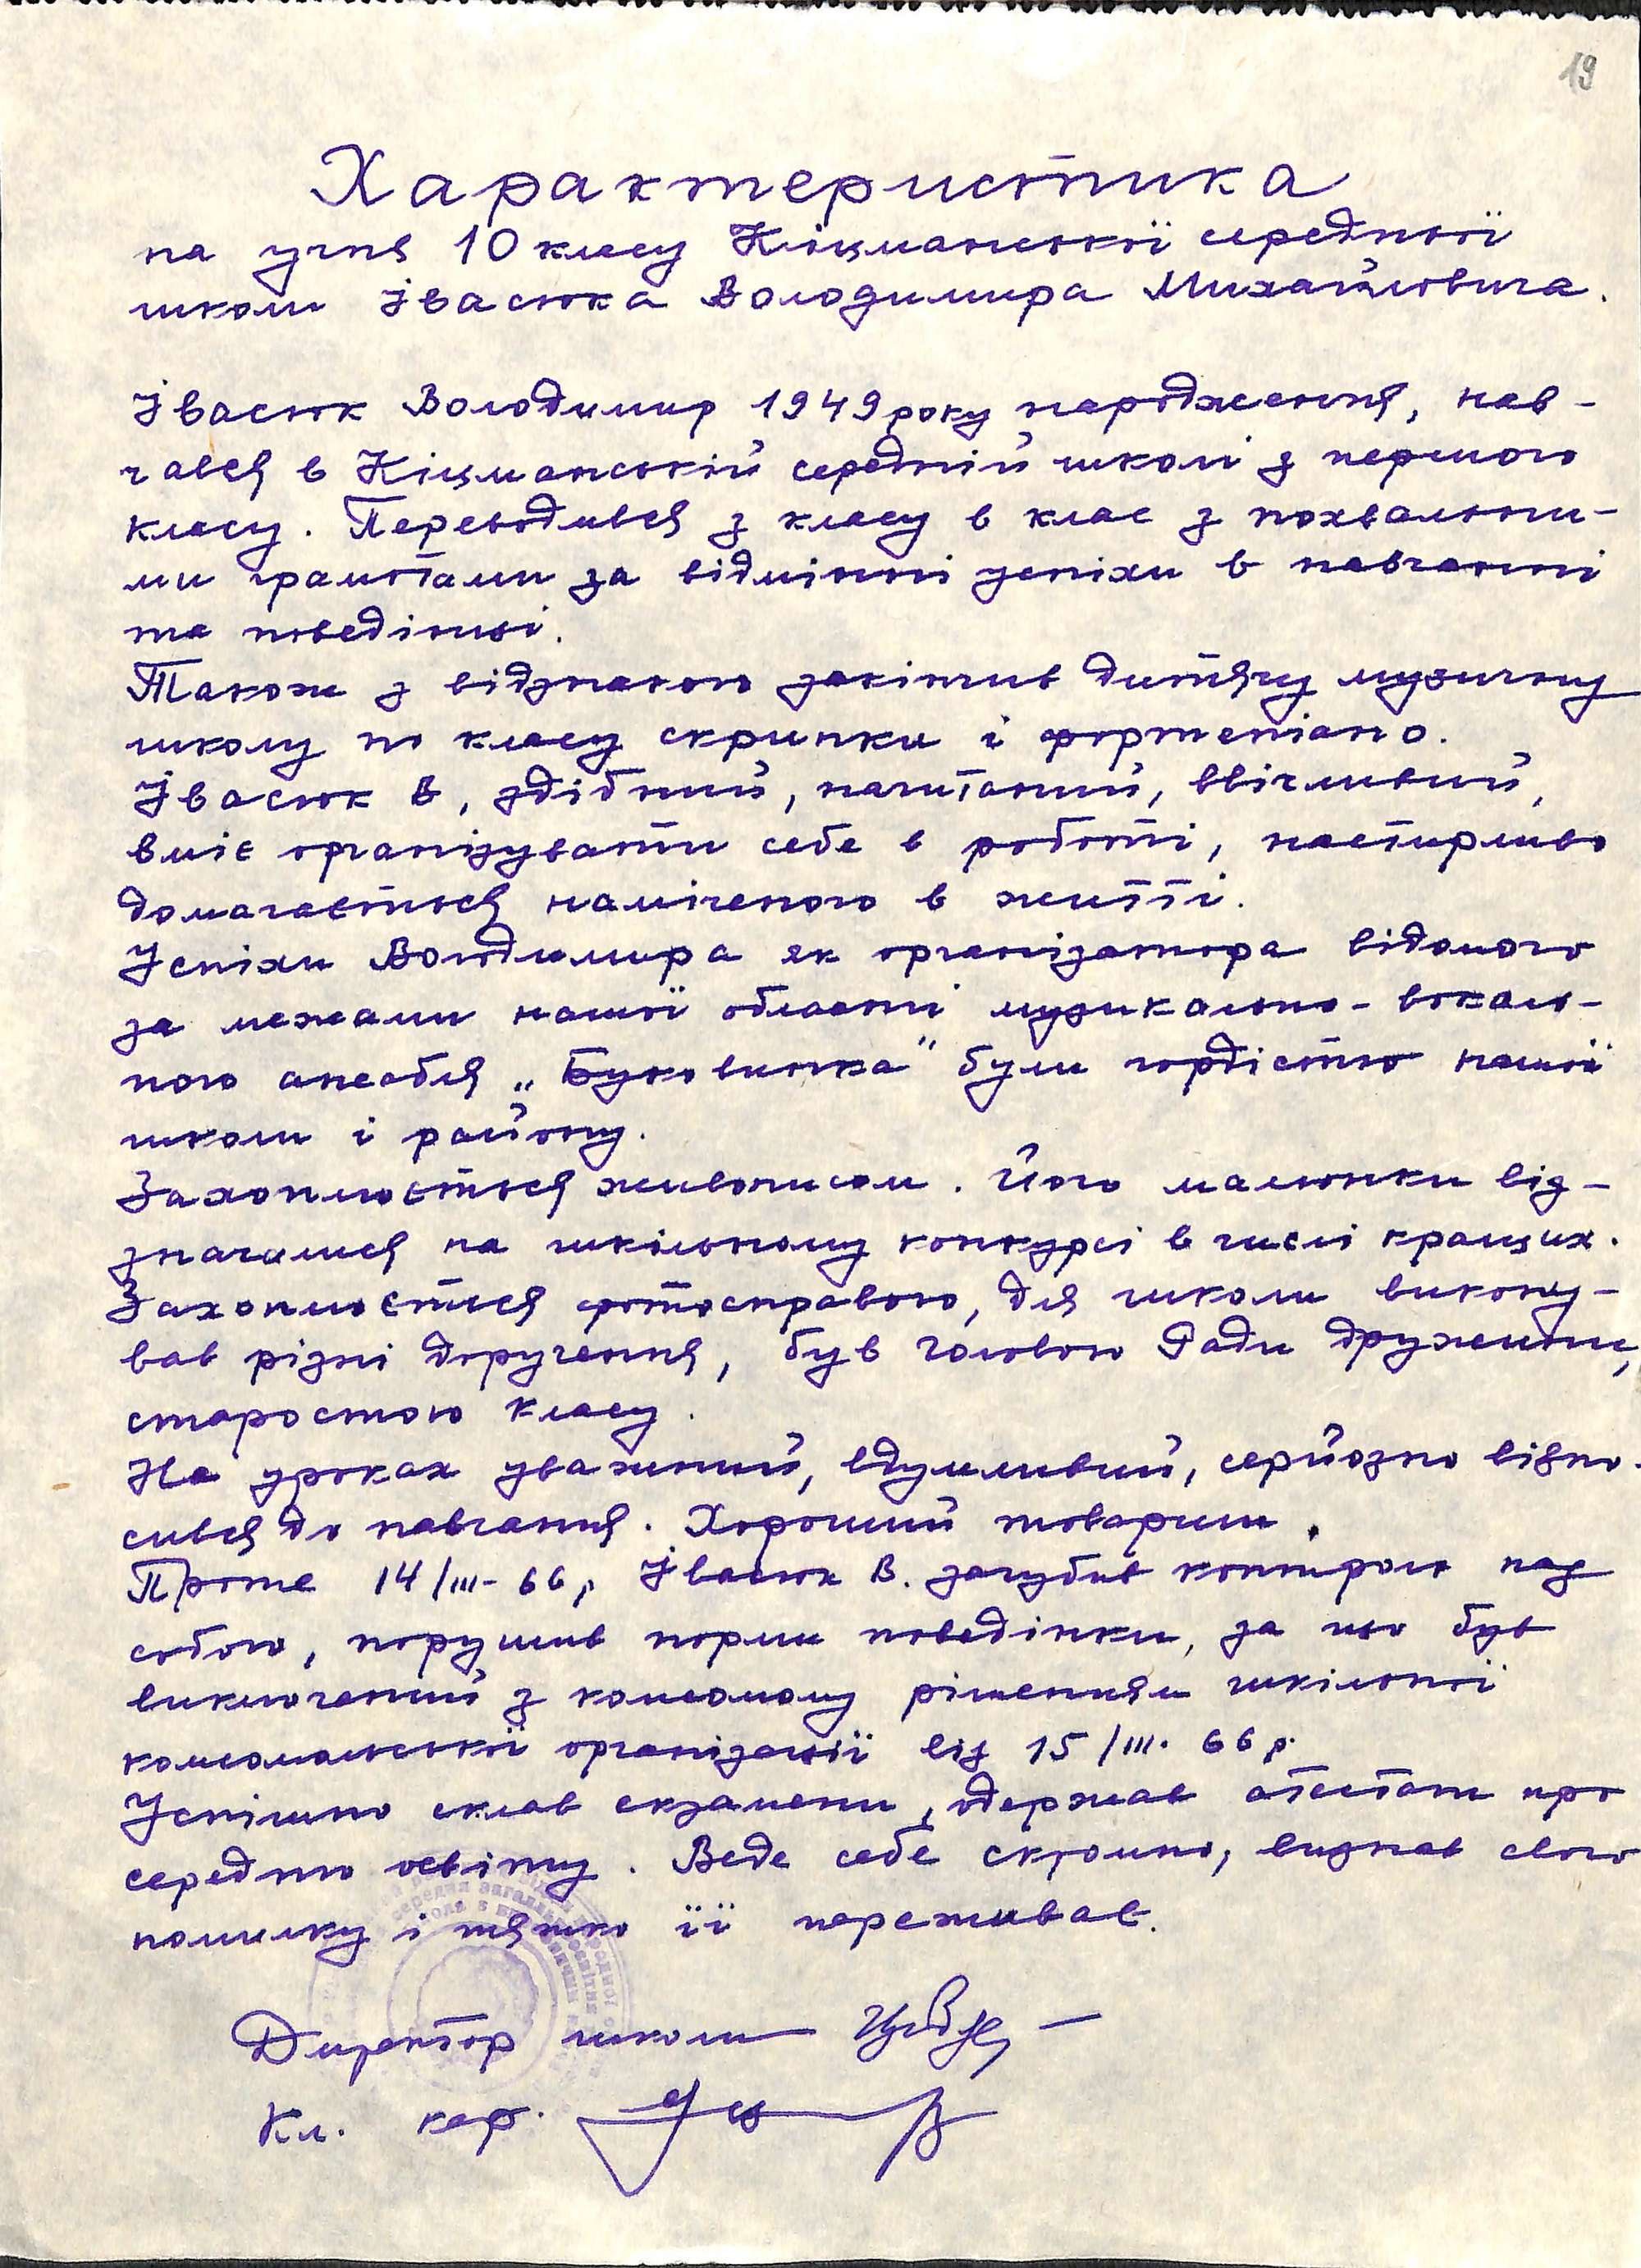 19
Характеристика
на учня 10 класу Кіцманської середньої
школи Івасюка Володимира Михайловича.
Івасюк Володимир 1949 року народження, нав-
чався в Кіцманській середній школі з першого
класу. Переводився з класу в клас з похвальни-
ми грамотами за відмінні успіхи в навчанні
та поведінці.
Також з відзнакою закінчив дитячу музичну
школу по класу скрипки і фортепіано.
Івасюк В, здібний, начитаний, ввічливий,
вміє організувати себе в роботі, настирливо
домагається наміченого в житті.
Успіхи Володимира як організатора відомого
за межами нашої області музикально-вокаль-
ного ансабля „Буковинка" були гордістю нашої
школи і району.
Захоплюється живописом. Його малюнки від-
значались на шкільному конкурсі в числі кращих.
Захоплюється фотосправою, для школи викону-
вав різні доручення, був головою Ради дружини,
старостою класу.
На уроках уважний, вдумливий, серйозно відно-
сився до навчання. Хороший товариш.
Проте 14/III-66р Івасюк В. загубив контроль над
собою, порушив норми поведінки, за що був
виключений з комсомолу рішенням шкільної
комсомольської організації від 15/III. 66 р.
Успішно склав екзамени, одержав атестат про
середню освіту. Веде себе скромно, визнав свою
помилку і тяжко її переживає.
Директор школи
Кл. кер.